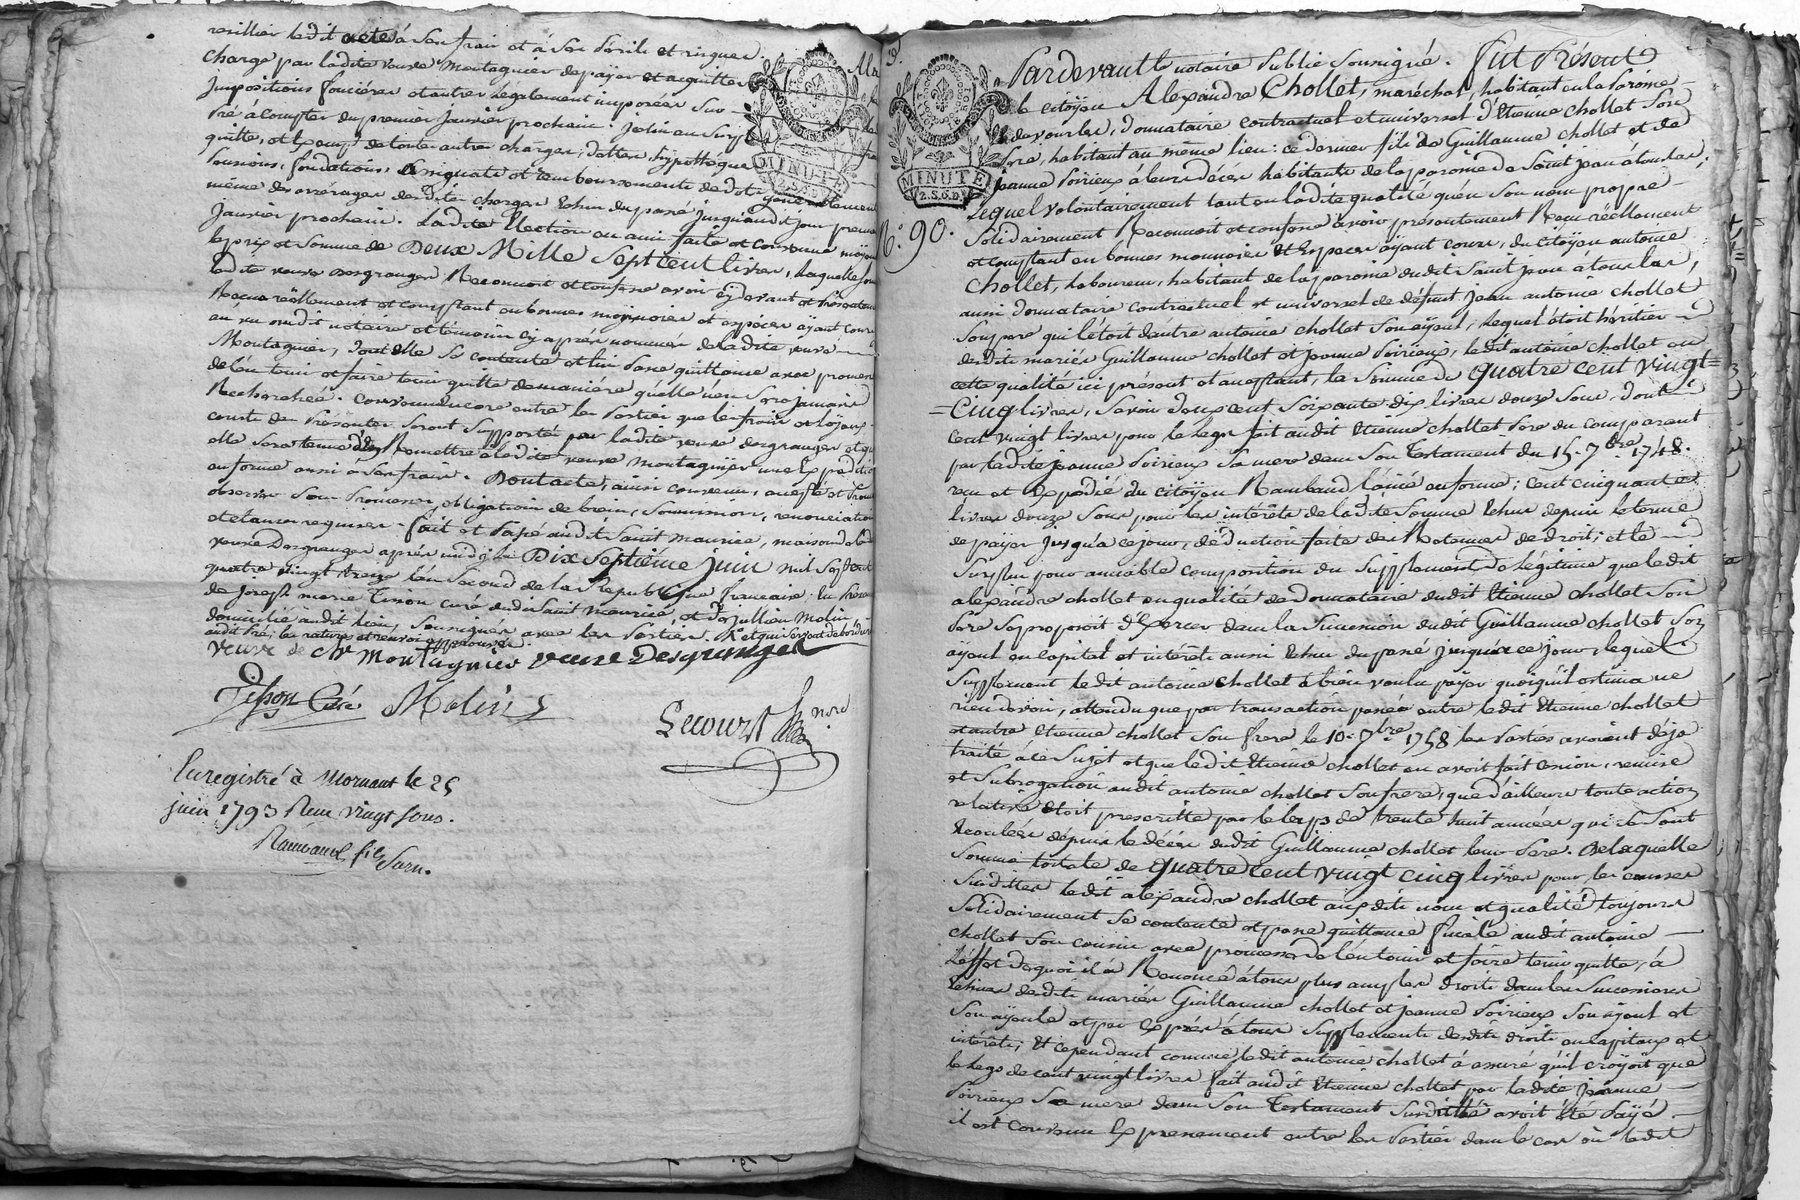 ledit acte à ses frais et à ses périls et risques.
charge par ladite veuve Montagnier de payer et acquitter
Impositions foncières et autres légalement imposées sur
pré à compter du premier janvier prochain. jolin au surplus
quitte, et Exempt de toute autre charges, dettes, hypothèques
fondations, assignats et remboursements desdits
même des arrérages desdites charges Echus du passé jusqu'audit jour premier
janvier prochain. Ladite Election en ami faite et convenue moyennant
le prix et somme de Deux Mille Sept Cent livres, laquelle somme
ladite veuve Desgranges Reconnoit et confesse avoir cy devant et présentement
Recue réellement et comptant en bonnes monnoies et espèces ayant cours
au vu dudit notaire et témoins cy après nommés de ladite veuve
Montagnier, dont elle se contente et l'en passe quittance avec promesse
de l'en tenir et faire tenir quitte de manière qu'elle n'en sera jamais
Recherchée. convenu encore entre les Parties que les frais et loyaux
couts des Présentes seront supportés par ladite veuve desgranges et que
elle sera tenue de Remettre à ladite veuve montagnier une Expedition
en forme aussi à ses frais. Dont acte, ainsi convenu, accepté et promis
observer sous Promesses, obligation de biens, soumission, renonciation
et clauses requises. fait et Passé audit Saint Maurice, maison de la
veuve Desgranges après midi le Dix Septième juin mil sept cent
quatre vingt treize l'an Second de la République francaise. En Présence
de joseph marie Tisson curé dudit Saint Maurice, et de jullien Molin
domicilié audit lieu, soussignés avec les Parties.
veuve de chr Montagnier veuve Desgranges
Tisson Curé Molin
Lecourt nore
Enregistré à Mornant le 25
juin 1793 Reçu vingt sous.
Rambaud fils
MINUTE
2.S.6.D.
MINUTE
2.S.6.D.
N.º 90.
Pardevant le notaire Public soussigné. Fut Présent
le citoyen Alexandre Chollet, maréchal, habitant en la Paroisse
de devourles, donnataire contractuel et universel d'Etienne chollet son
Père, habitant au même lieu: ce dernier fils de Guillaume chollet et de
jeanne Poirieux à leurs décès habitants de la paroisse de Saint jean à touslas;
Lequel volontairement tant en ladite qualité qu'en son nom propre
Solidairement Reconnoit et confesse avoir présentement Reçu réellement
et comptant en bonnes monnoies et Espèces ayant cours, du citoyen antoine
Chollet, laboureur, habitant de la paroisse dudit Saint jean à touslas,
aussi donnataire contractuel et universel de défunt jean antoine chollet
son pere qui l'étoit d'autre antoine chollet son ayeul, lequel étoit héritier
desdits mariés Guillaume chollet et jeanne Poirieux, ledit antoine chollet en
cette qualité ici présent et acceptant, la Somme de quatre cent vingt=
=Cinq livres, savoir deux cent soixante dix livres douze sous, dont
cent vingt livres pour le legs fait audit Etienne chollet Père du comparant
par ladite jeanne Poirieux sa mere dans son Testament du 15. 7bre 1748.
reçu et Expédié du citoyen Rambaud l'ainé en forme; cent cinquante
livres douze sous pour les intérêts de ladite Somme Echus depuis le terme
de payer jusqu'à ce jour, déduction faite des Retenues de droit; et le
surplus pour amiable composition du supplement de légitime que ledit
alexandre chollet en qualité de donnataire dudit Etienne chollet son
Pere se proposoit d'Exercer dans la Succession dudit Guillaume chollet Son
ayeul en capital et intérêts aussi Echus du passé jusqu'à ce jour, lequel
supplement ledit antoine chollet à bien voulu payer quoiqu'il estima ne
rien devoir, attendu que par transaction passée entre ledit Etienne chollet
et autre Etienne chollet son frere le 10. 7bre 1758 les Parties avoient déja
traité à ce Sujet et que ledit Etienne chollet en avoit fait cession, remise
et Subrogation audit antoine chollet son frere, que d'ailleurs toute action
relative étoit prescritte par le laps de trente huit années qui se sont
Ecoulées depuis le décès dudit Guillaume chollet leur Pere. De laquelle
Somme totale de quatre cent vingt cinq livres pour les causes
susdittes ledit alexandre chollet auxdits nom et qualité toujours
solidairement se contente et passe quittance finale audit antoine
chollet son cousin avec promesse de l'en tenir et faire tenir quitte, à
l'effet de quoi il a Renoncé à tous plus amples droits dans les Successions
Echues desdits mariés Guillaume chollet et jeanne Poirieux son ayeul et
son ayeule et par Exprès à tous supplements desdits droits en capitaux et
intérêts; Et cependant comme ledit antoine chollet à assuré qu'il croyoit que
le legs de cent vingt livres fait audit Etienne chollet par ladite jeanne
Poirieux sa mere dans son Testament susdatté avoit été Payé
il est convenu Expressement entre les Parties dans le cas où ledit